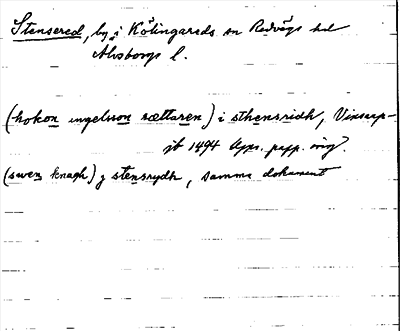 Stensered, by i Kölingareds sn Redvägs hd
Älvsborgs l.
(hokon ingelsson sættaren) i sthensridh, Vinsarp-
jb 1494 Upps. papp. orig.
(swen knagh) y stensrydh, samma dokument